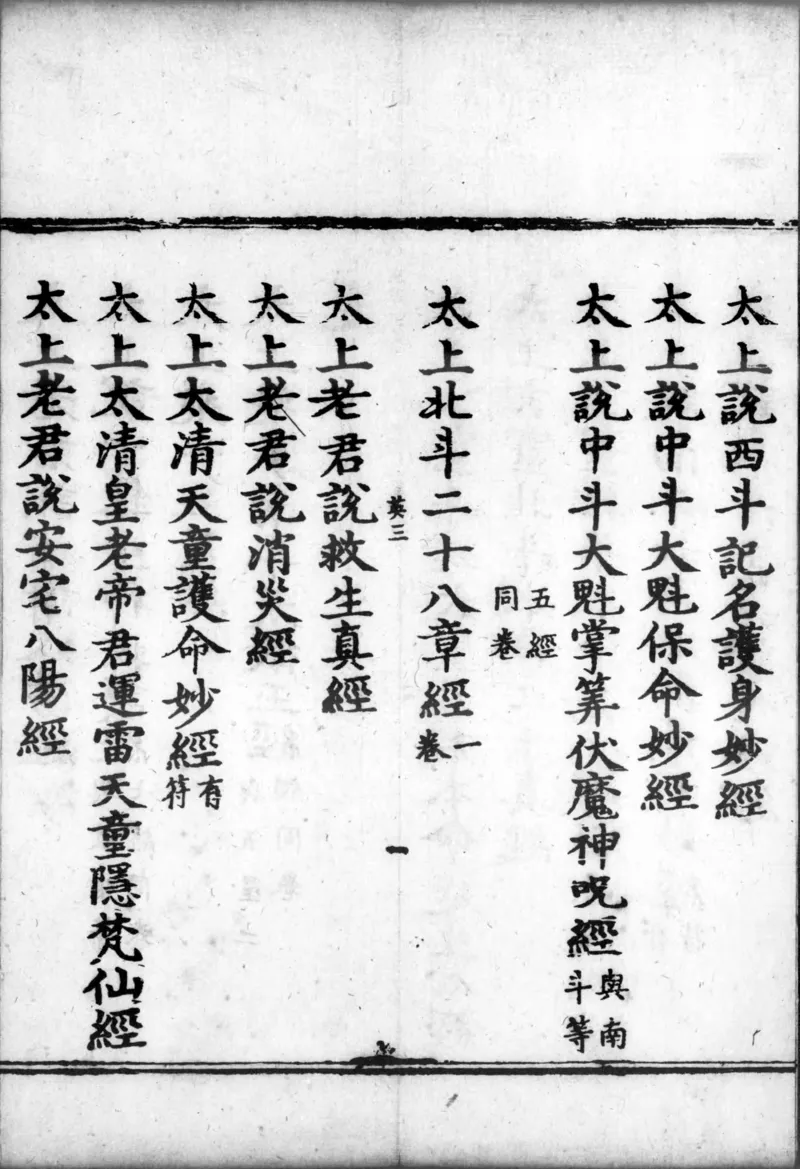 太上說西斗記名護身妙經
太上說中斗大魁保命妙經
太上說中斗大魁掌筭伏魔神呪經 與南斗等
五經同卷
太上北斗二十八章經 一卷
英三
一
太上老君說救生真經
太上老君說消災經
太上太清天童護命妙經 有符
太上太清皇老帝君運雷天童隱梵仙經
太上老君說安宅八陽經